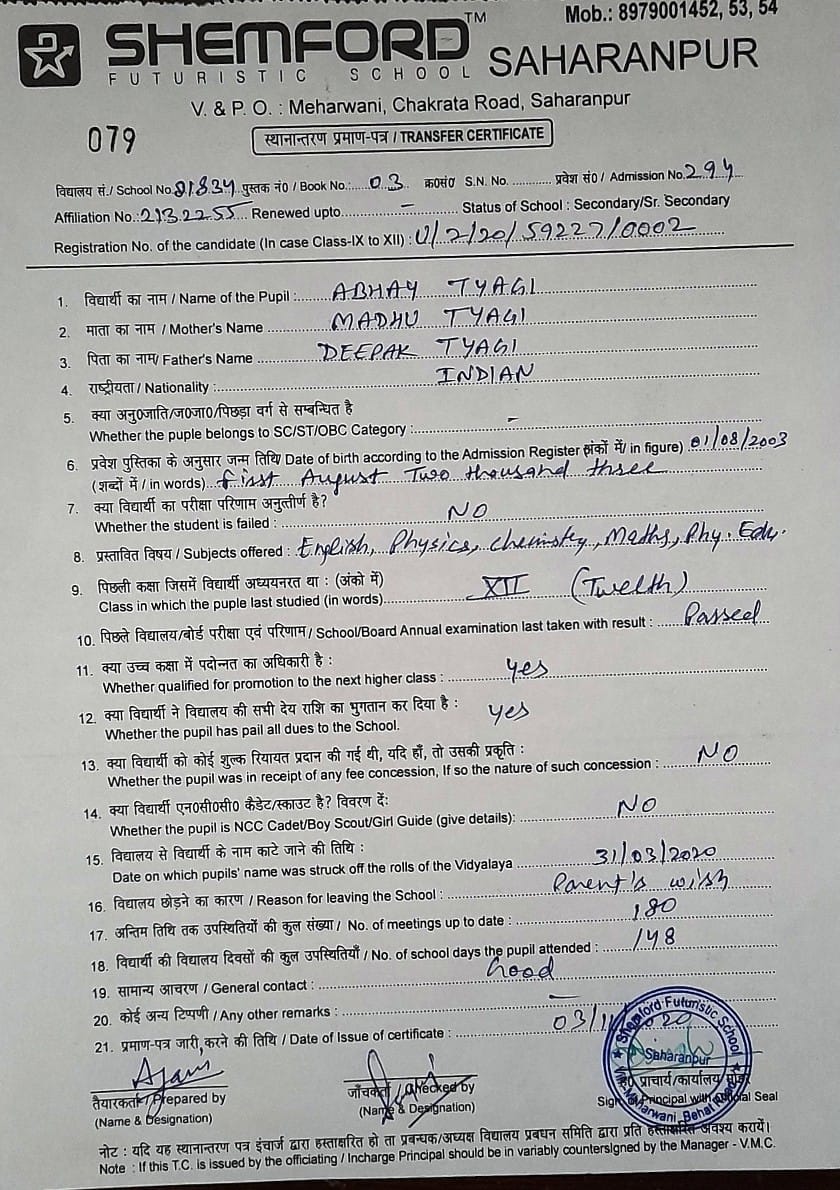 SHEMFORD TM
Mob.: 8979001452, 53, 54
FUTURISTIC SCHOOL SAHARANPUR
V. & P. O. : Meharwani, Chakrata Road, Saharanpur
079
स्थानान्तरण प्रमाण-पत्र / TRANSFER CERTIFICATE
विद्यालय सं./ School No. 81834 पुस्तक नं0 / Book No.: 03 क्र0सं0 S.N. No. ............ प्रवेश सं0 / Admission No. 294
Affiliation No.: 2132255 Renewed upto - Status of School : Secondary/Sr. Secondary
Registration No. of the candidate (In case Class-IX to XII) : U/2/20/59227/0002
1. विद्यार्थी का नाम / Name of the Pupil : ABHAY TYAGI
2. माता का नाम / Mother's Name MADHU TYAGI
3. पिता का नाम/ Father's Name DEEPAK TYAGI
4. राष्ट्रीयता / Nationality : INDIAN
5. क्या अनु0जाति/ज0जा0/पिछड़ा वर्ग से सम्बन्धित है
Whether the puple belongs to SC/ST/OBC Category : -
6. प्रवेश पुस्तिका के अनुसार जन्म तिथि/ Date of birth according to the Admission Register (अंकों में/ in figure) 01/08/2003
(शब्दों में / in words) first August Two thousand three
7. क्या विद्यार्थी का परीक्षा परिणाम अनुत्तीर्ण है?
Whether the student is failed : NO
8. प्रस्तावित विषय / Subjects offered : English, Physics, chemistry, Maths, Phy. Edu.
9. पिछली कक्षा जिसमें विद्यार्थी अध्ययनरत था : (अंको में)
Class in which the puple last studied (in words) XII (Twelth)
10. पिछले विद्यालय/बोर्ड परीक्षा एवं परिणाम / School/Board Annual examination last taken with result : Passed
11. क्या उच्च कक्षा में पदोन्नत का अधिकारी है :
Whether qualified for promotion to the next higher class : yes
12. क्या विद्यार्थी ने विद्यालय की सभी देय राशि का भुगतान कर दिया है :
Whether the pupil has pail all dues to the School. yes
13. क्या विद्यार्थी को कोई शुल्क रियायत प्रदान की गई थी, यदि हाँ, तो उसकी प्रकृति :
Whether the pupil was in receipt of any fee concession, If so the nature of such concession : NO
14. क्या विद्यार्थी एन0सी0सी0 कैडेट/स्काउट है? विवरण दें:
Whether the pupil is NCC Cadet/Boy Scout/Girl Guide (give details): NO
15. विद्यालय से विद्यार्थी के नाम काटे जाने की तिथि :
Date on which pupils' name was struck off the rolls of the Vidyalaya 31/03/2020
16. विद्यालय छोड़ने का कारण / Reason for leaving the School : Parent's wish
17. अन्तिम तिथि तक उपस्थितियों की कुल संख्या / No. of meetings up to date : 180
18. विद्यार्थी की विद्यालय दिवसों की कुल उपस्थितियाँ / No. of school days the pupil attended : 148
19. सामान्य आचरण / General contact : Good
20. कोई अन्य टिप्पणी / Any other remarks : -
21. प्रमाण-पत्र जारी करने की तिथि / Date of Issue of certificate : 03/11/2020
Shemford Futuristic School
Saharanpur
तैयारकर्ता / Prepared by
जाँचकर्ता / Checked by
ह0 प्राचार्य/कार्यालय मोहर
(Name & Designation)
(Name & Designation)
Sign. of Principal with Official Seal
नोट : यदि यह स्थानान्तरण पत्र इंचार्ज द्वारा हस्ताक्षरित हो ता प्रबन्धक/अध्यक्ष विद्यालय प्रबधन समिति द्वारा प्रति हस्ताक्षरित अवश्य करायें।
Note : If this T.C. is issued by the officiating / Incharge Principal should be in variably countersigned by the Manager - V.M.C.